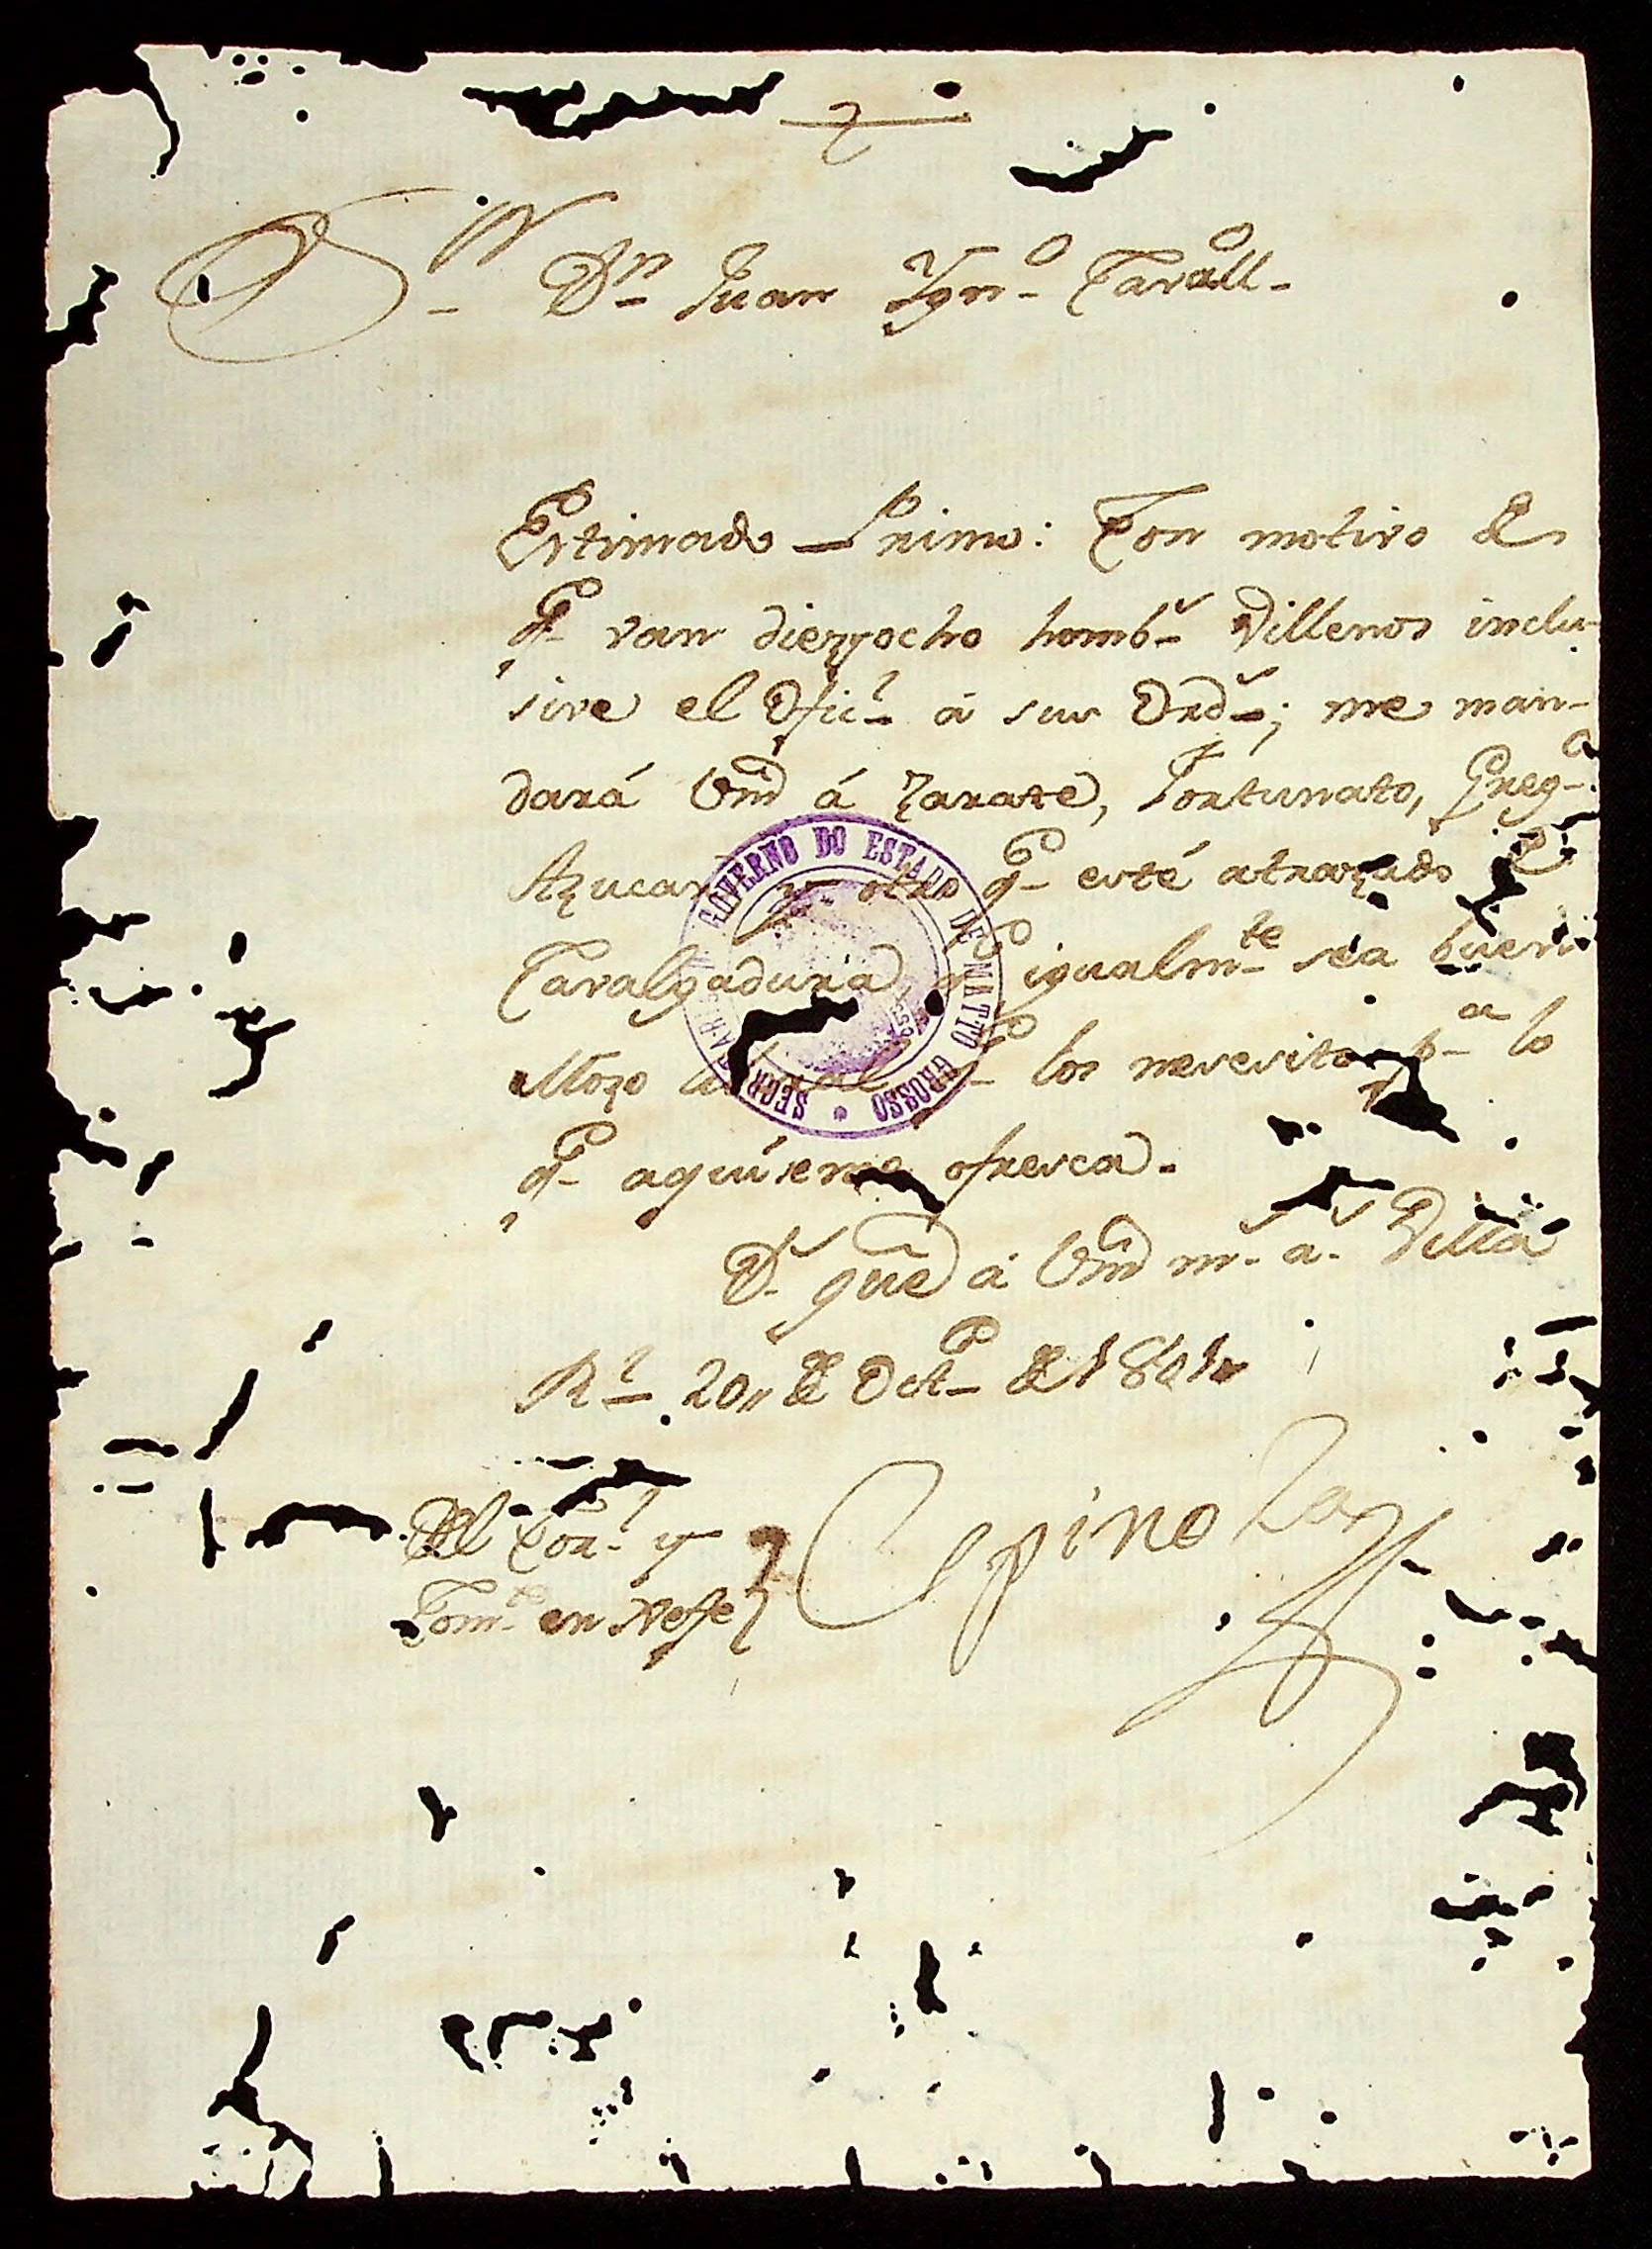 Sr. Dn. Juan Ygn.o Cavall.o
Estimado Primo: Con motivo de
q.e van diezyocho homb.s Villenos inclu-
sive el Ofic.l á sus Ord.s; me man-
dará Vmd á Zarate, Fortunato, Greg.o
Azucar y otro q.e esté atrazado de
Cavalgadura, q.e igualm.te sea buen
Mozo q.e los necesito p.a lo
q.e aquí se me ofresca.
D.s gue á Vmd m.s a.s Villa
R.l 20,, de Oct.e de 1801
El Cor.l y
Com.te en Xefe
Espinola
SECRETARIA GOVERNO DO ESTADO DE MATTO GROSSO